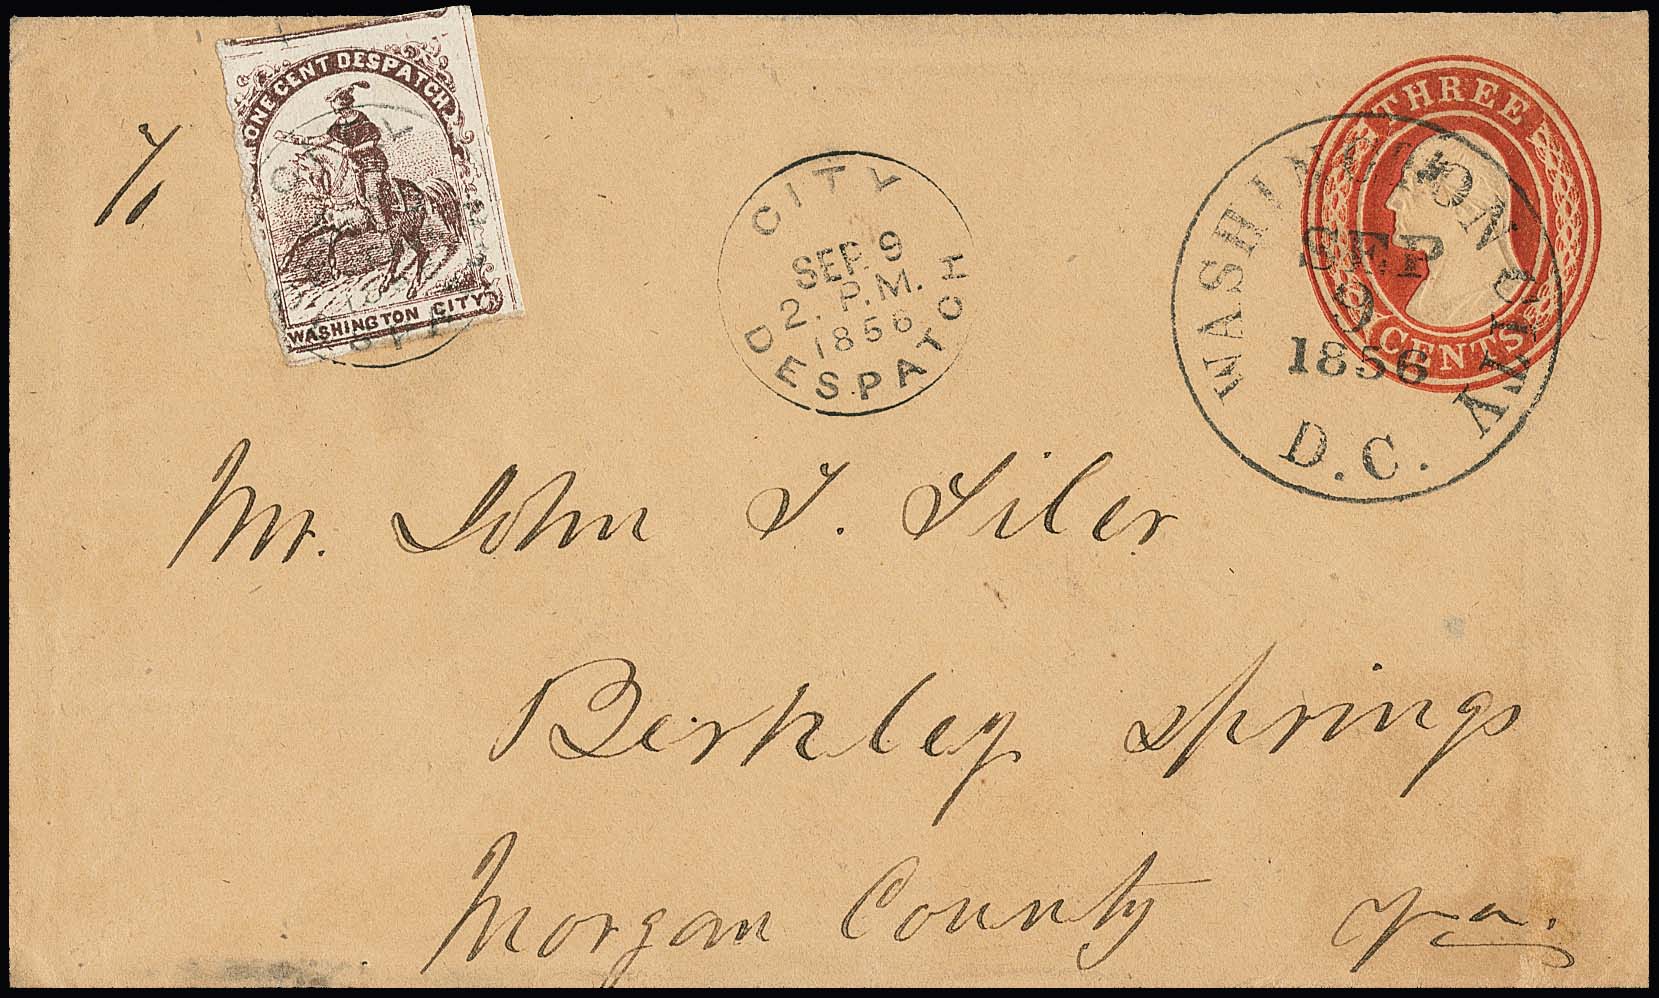 ONE CENT DESPATCH
WASHINGTON CITY
CITY
SEP. 9
2. P.M.
1856
DESPATCH
THREE
CENTS
WASHINGTON CITY
SEP
9
1856
D.C.
Mr. John T. Siler
Berkley Springs
Morgan County Va.